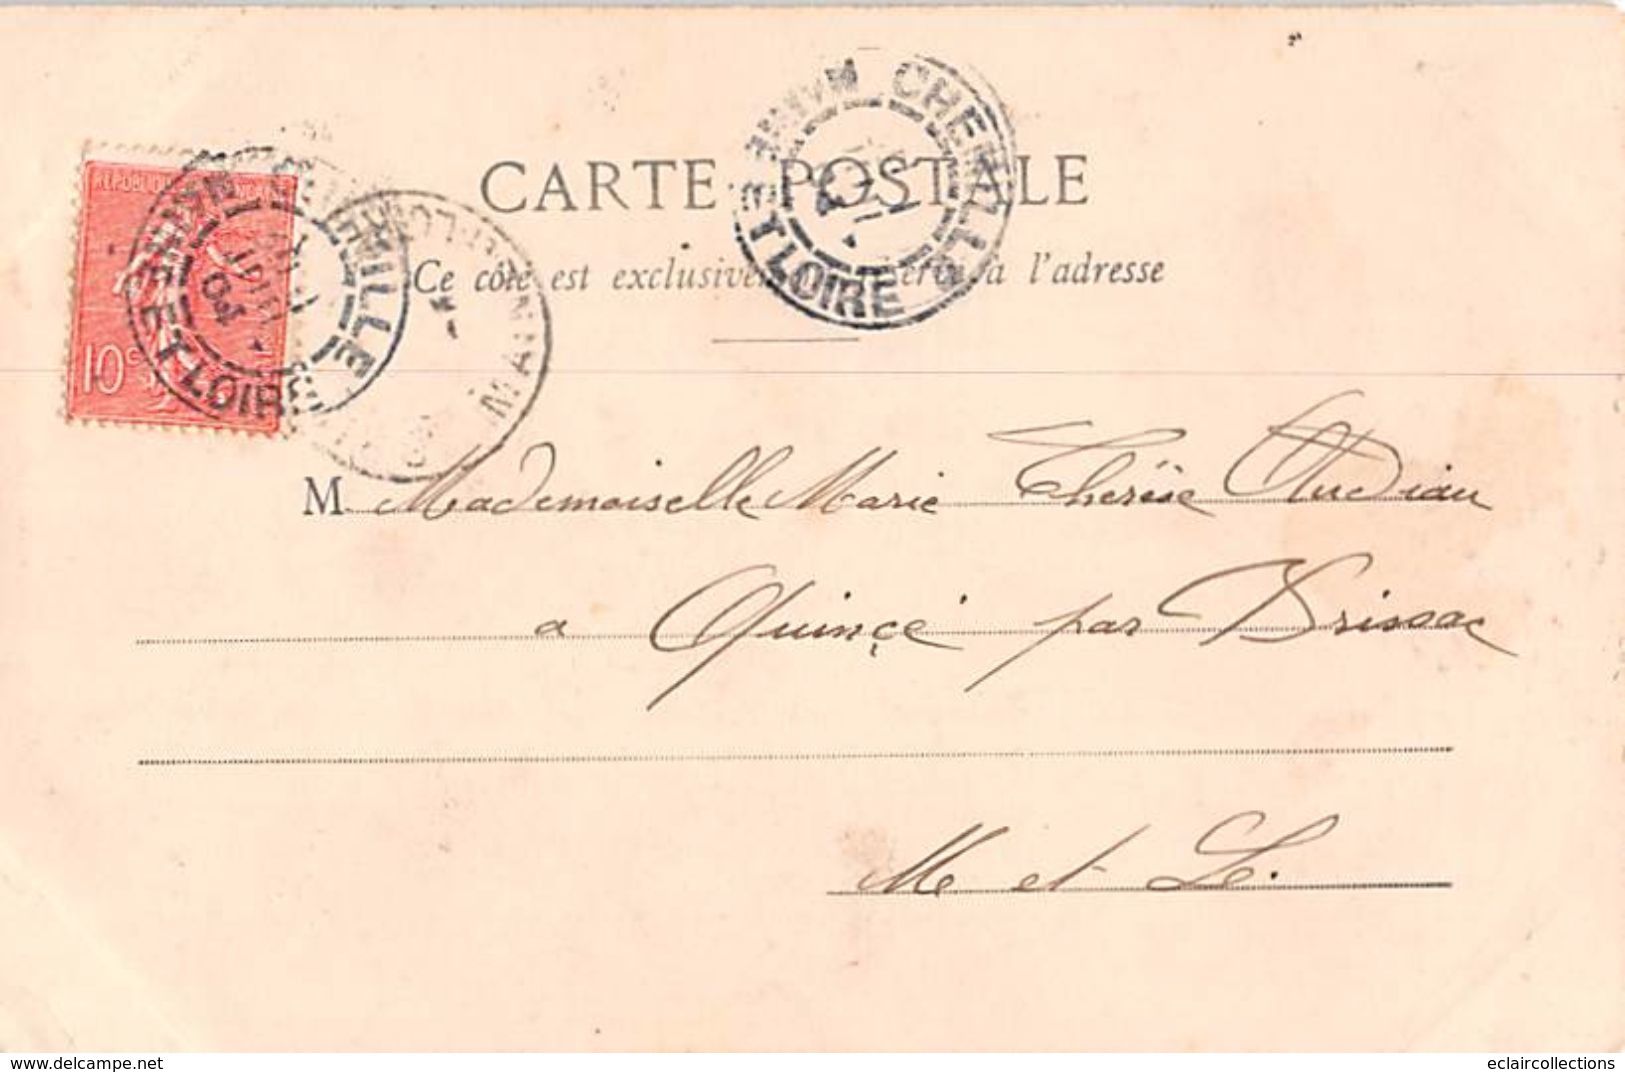 CHEMILLÉ
MAINE ET LOIRE
RÉPUBLIQUE
10c
CHEMILLÉ
MAINE ET LOIRE
04
CARTE POSTALE
Ce côté est exclusivement réservé à l'adresse
M. Mademoiselle Marie Thérèse Audiau
a Quinçé par Brissac
M et L.
www.delcampe.net
eclaircollections